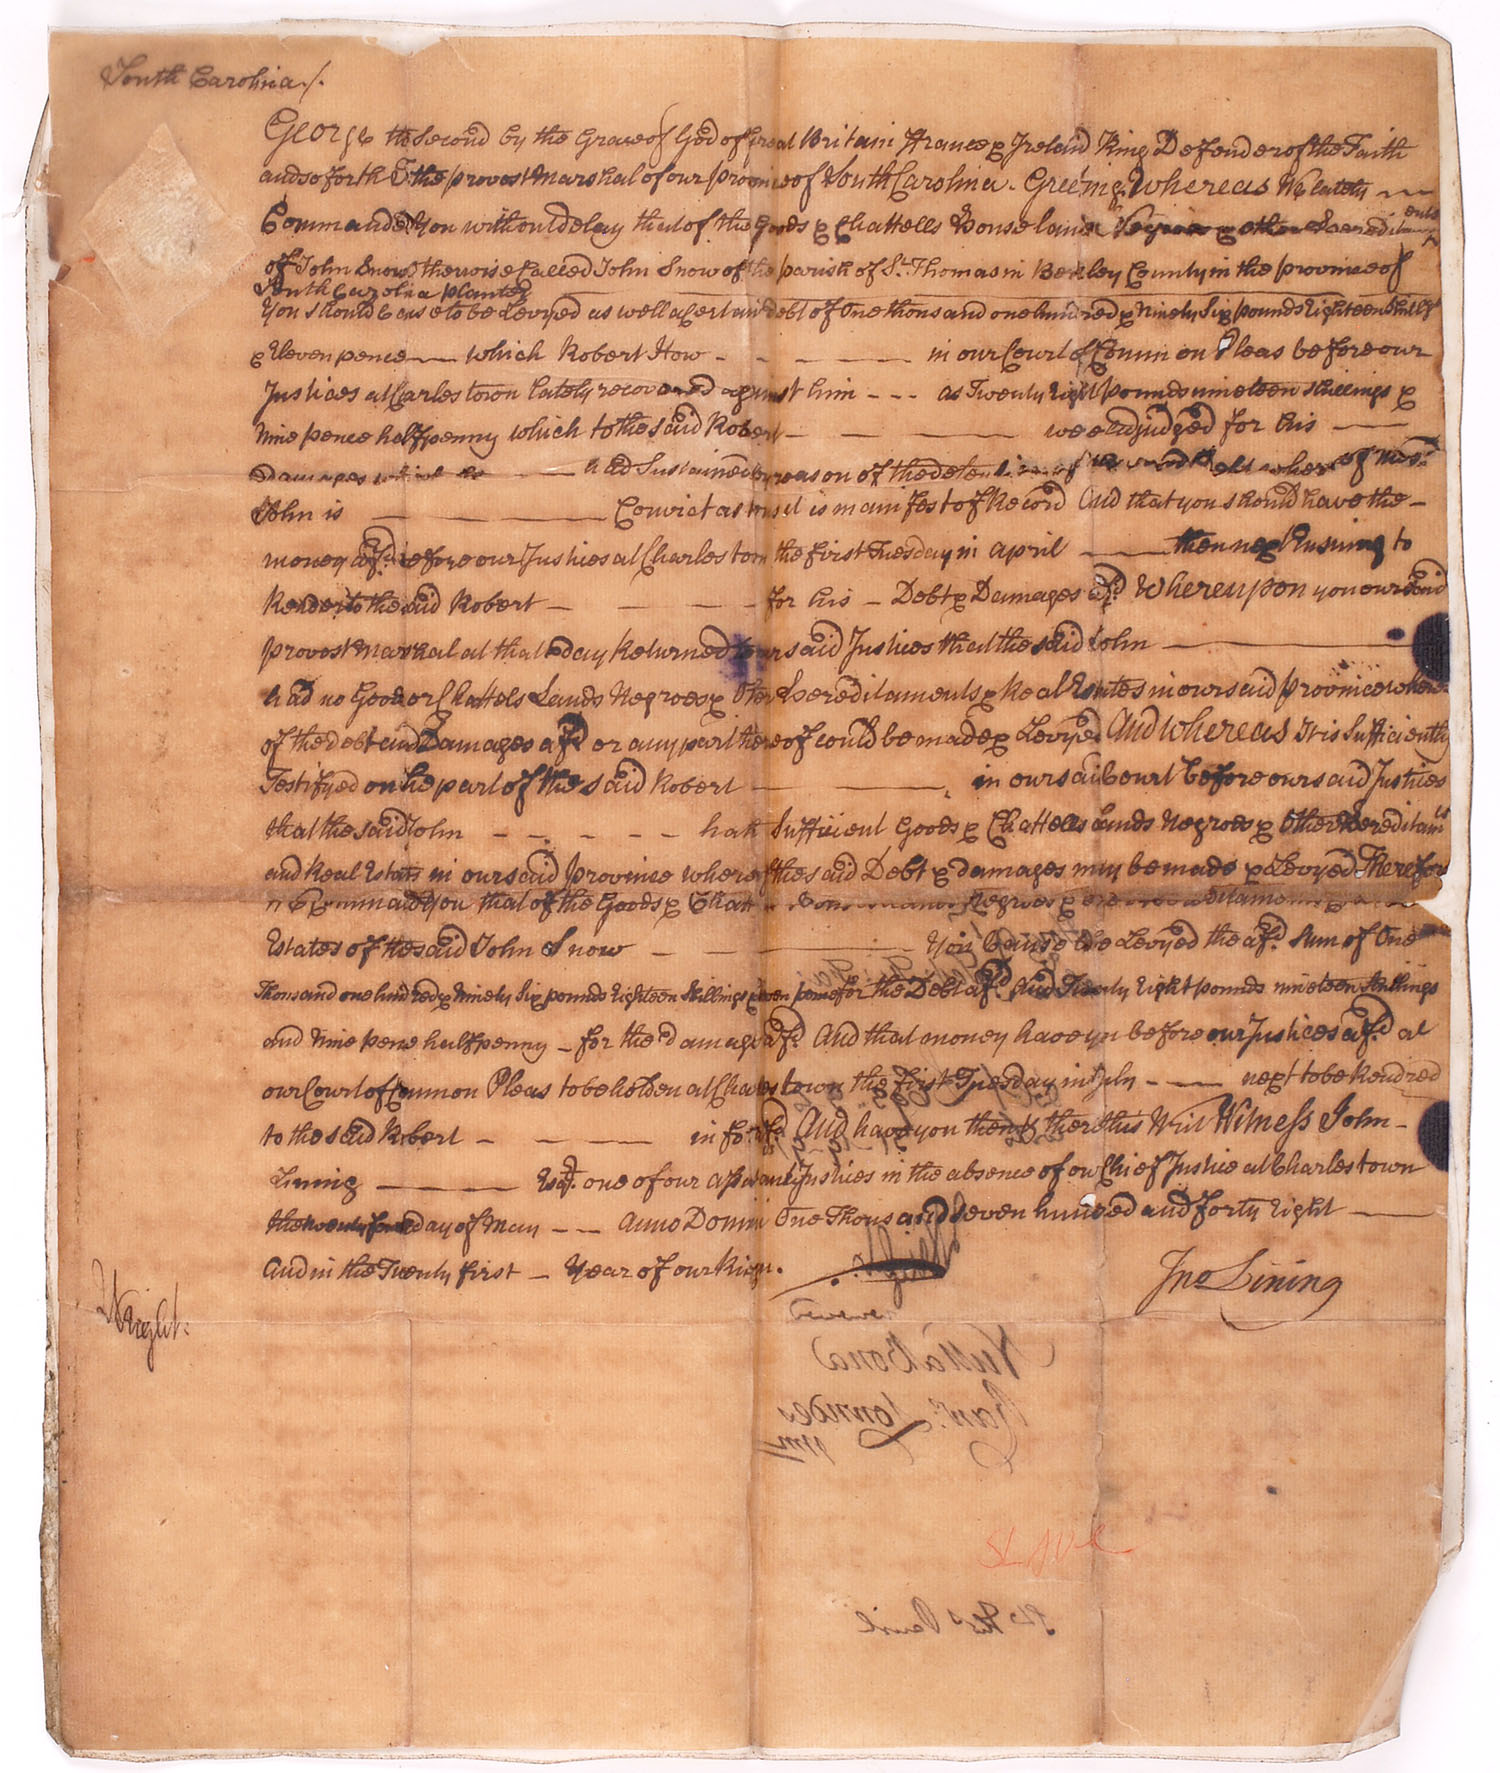 South Carolina /.
George the Second by the Grace of God of Great Britain France & Ireland King Defender of the Faith
and so forth To the provost Marshal of our province of South Carolina. Greeting Whereas We lately
Commanded You without delay that of the Goods & Chattells Houses lands Negroes & other Hereditaments
of John Snow otherwise Called John Snow of the parish of St. Thomas in Berkley County in the province of
South Carolina planter
You should Cause to be Levyed as well a Certain debt of One thousand one hundred & Ninety Six pounds Eighteen Shillgs
& Eleven pence which Robert How in our Court of Common Pleas before our
Justices at Charles town lately recovered against him as Twenty Eight pounds nineteen shillings &
Nine pence halfpenny which to the said Robert were adjudged for his
Damages which he had Sustained by reason of the detention of the said Debt whereof the sd.
John is Convict as to us it is manifest of Record And that you should have the
money afd. before our Justices at Charles town the first Tuesday in april then next Ensuing to
Render to the said Robert for his Debt & Damages afd. Whereupon you our said
provost Marshal at that day Returned to our said Justices that the said John
had no Goods or Chattels Lands Negroes & Other Hereditaments & Real Estates in our said province where
of the debt and Damages afd. or any part thereof could be made & Levyed And Whereas It is Sufficiently
Testifyed on the part of the said Robert in our said Court before our said Justices
that the said John hath Sufficient Goods & Chattells Lands Negroes & Other Hereditamts
and Real Estate in our said province whereof the said Debt & damages may be made & Levyed Therefore
we Command You that of the Goods & Chattells Negroes &
Estates of the said John Snow You Cause to be Levyed the afd. Sum of One
Thousand one hundred & Ninety Six pounds Eighteen Shillings Eleven pence for the Debt afd. And Twenty Eight pounds nineteen Shillings
and Nine pence halfpenny for the damages afd. And that money have you before our Justices afd. at
our Court of Common Pleas to be holden at Charles town the first Tuesday in July next to be Rendred
to the said Robert in for afd. And have you then & there this Writ Witness John
Lining Esqr. one of our assistant Justices in the absence of our Chief Justice at Charles town
the twenty fourth day of May Anno Domini One Thousand Seven hundred and forty Eight
And in the Twenty first Year of our Reign.
Jno Lining
Wright.
Nulla Bona
Raws. Lowndes
PM
SLAVE